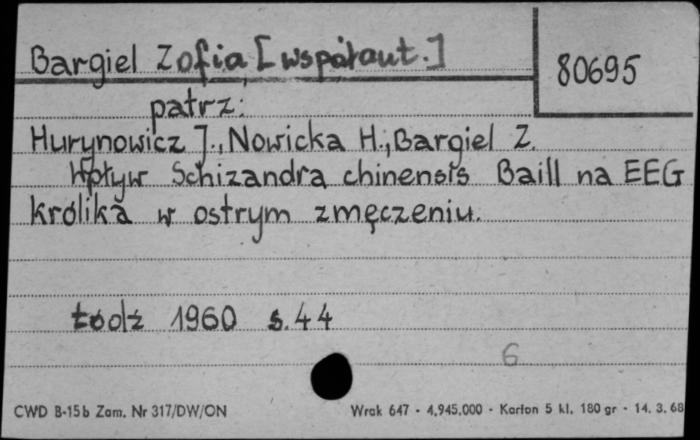 Bargiel Zofia [współaut.]
80695
patrz:
Hurynowicz J., Nowicka H., Bargiel Z.
Wpływ Schizandra chinensis Baill na EEG
królika w ostrym zmęczeniu.
Łódź 1960 s. 44
6
CWD B-15b Zam. Nr 317/DW/ON
Wrak 647 - 4,945.000 - Karton 5 kl. 180 gr - 14. 3. 68